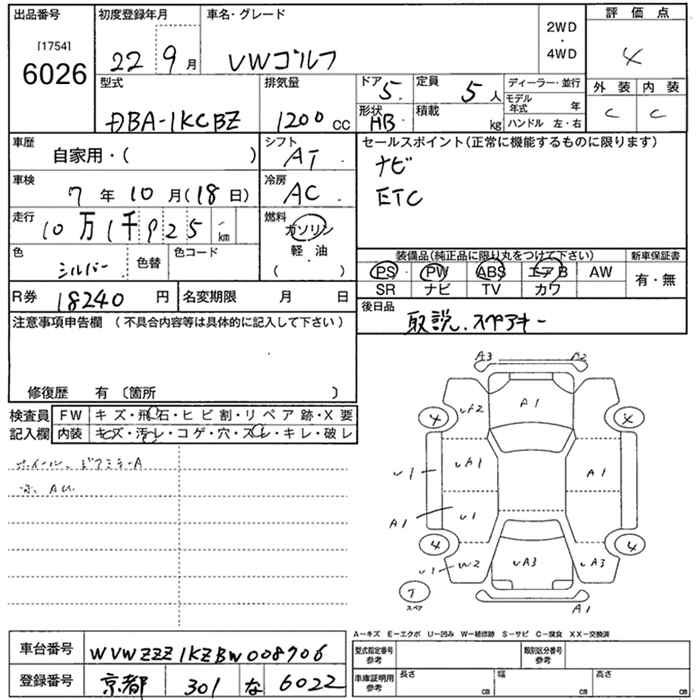 出品番号 初度登録年月 車名・グレード 評価点
[1754] 6026 22年9月 VWゴルフ 2WD・4WD 4
型式 排気量 ドア 5 定員 5人 ディーラー・並行 外装 内装
DBA-1KCBZ 1200cc 形状 HB 積載 kg モデル年式 年 ハンドル 左・右 C C
車歴 シフト セールスポイント(正常に機能するものに限ります)
自家用・( ) AT ナビ
車検 冷房 ETC
7年10月(18日) AC
走行 燃料
10万1千925km ガソリン 軽・油 ( )
色 色替 色コード 装備品(純正品に限り丸をつけて下さい) 新車保証書
シルバー PS PW ABS エアB AW 有・無
R券 18240円 名変期限 月 日 SR ナビ TV カワ
注意事項申告欄(不具合内容等は具体的に記入して下さい) 後日品
取説、スペアキー
修復歴 有〔箇所 〕
検査員記入欄 FW キズ・飛石・ヒビ割・リペア跡・X要
内装 キズ・汚レ・コゲ・穴・スレ・キレ・破レ
A3 A2
4 U2 A1 X
U1 UA1 A1
A1 U1
4 4
U1 W2 UA3 UA3
T スペア A1
A-キズ E-エクボ U-凹み W-補修跡 S-サビ C-腐食 XX-交換済
車台番号 WVWZZZ1KZBW008706 型式指定番号 参考 類別区分番号 参考
登録番号 京都 301 な 6022 車庫証明用 参考 長さ cm 幅 cm 高さ cm